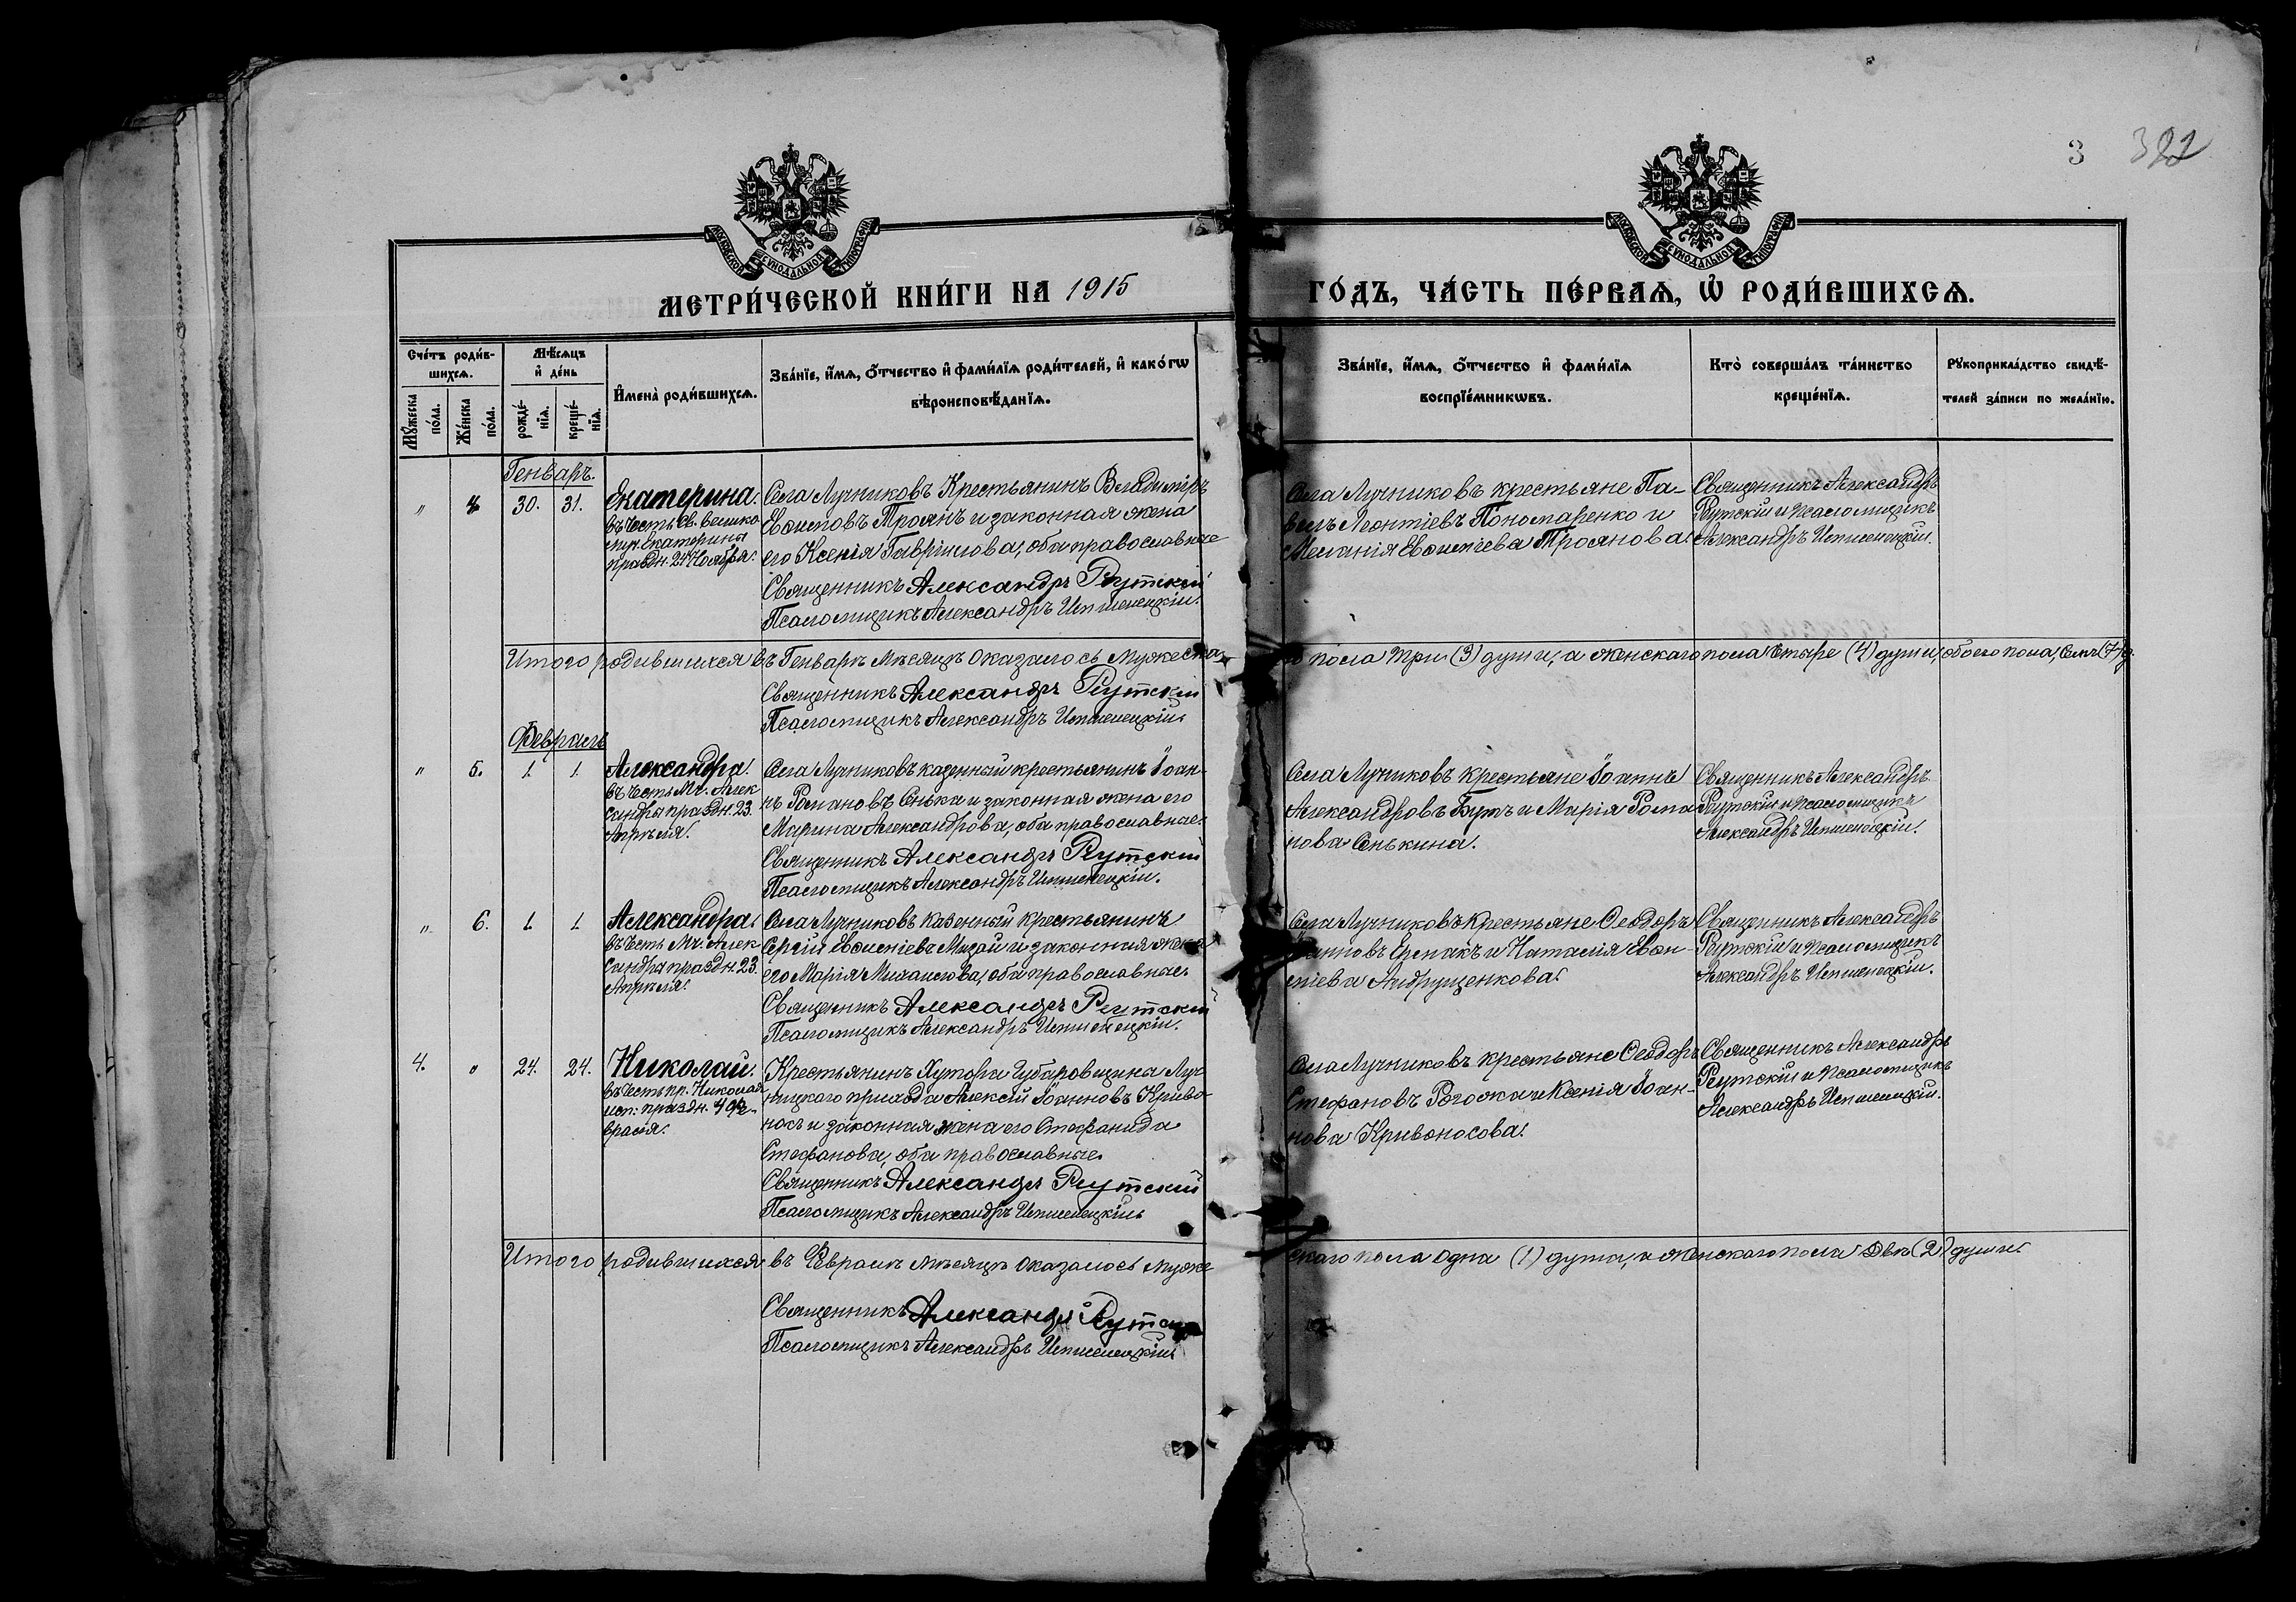 3 322
МОСКОВСКОЙ СУНОДАЛЬНОЙ ТИПОГРАФІИ
МОСКОВСКОЙ СУНОДАЛЬНОЙ ТИПОГРАФІИ
МЕТРИ́ЧЕСКОЙ КНИ́ГИ НА 1915 ГО́ДЪ, ЧА́СТЬ ПЕ́РВАѦ, Ѡ҆ РОДИ́ВШИХСѦ.
Сче́тъ роди́в-
шихсѧ.
Мꙋ́жеска по́ла.
Же́нска по́ла.
Мѣ́сѧцъ
и҆ де́нь
рожде́-
нїѧ.
креще́-
нїѧ.
И҆мена̀ роди́вшихсѧ.
Зва́нїе, и҆́мѧ, ѻ҆́тчество и҆ фами́лїѧ роди́телей, и҆ како́гѡ
вѣроисповѣ́данїѧ.
Зва́нїе, и҆́мѧ, ѻ҆́тчество и҆ фами́лїѧ
воспрїе́мникѡвъ.
Кто̀ соверша́лъ та́инство
креще́нїѧ.
Рꙋкоприкла́дство свидѣ́-
телей за́писи по жела́нїю.
Генварь.
" 4 30. 31.
Екатерина.
въ честь Св. велико
муч. Екатерины
праздн. 24 Ноября.
Села Лучниковъ Крестьянинъ Владиміръ
Евѳиміевъ Троянъ и законная жена
его Ксенія Гавріилова, оба православные
Священникъ Александръ Реутскій
Псаломщикъ Александръ
Села Лучниковъ крестьяне Па-
велъ Леонтіевъ Пономаренко и
Меланія Евѳиміева Троянова.
Священникъ Александръ
Реутскій и псаломщикъ
Александръ
Итого родившихся въ Генварѣ мѣсяцѣ оказалось мужеска-
го пола три (3) души, а женскаго пола четыре (4) души, обоего пола, семь (7) д.
Священникъ Александръ Реутскій
Псаломщикъ Александръ
Февраль
" 5. 1. 1.
Александра.
въ честь Мч. Алек
сандры праздн. 23.
Апрѣля.
Села Лучниковъ казенный крестьянинъ Іоан-
нъ Романовъ Сенька и законная жена его
Марина Александрова, оба православные.
Священникъ Александръ Реутскій
Псаломщикъ Александръ
Села Лучниковъ крестьяне Іоаннъ
Александровъ Бутъ и Марія Рома
нова Сенькина.
Священникъ Александръ
Реутскій и псаломщикъ
Александръ
" 6. 1. 1.
Александра.
въ честь Мч. Алек
сандры праздн. 23.
Апрѣля.
Села Лучниковъ казенный крестьянинъ
Сергій Евѳиміевъ и законная жена
его Марія Михаилова, оба православные.
Священникъ Александръ Реутскій
Псаломщикъ Александръ
Села Лучниковъ крестьяне Ѳеодоръ
Іоанновъ Ермакъ и Наталія Евѳи-
міева Андрущенкова.
Священникъ Александръ
Реутскій и псаломщикъ
Александръ
4. " 24. 24.
Николай.
въ честь пр. Николая
исп: праздн. 4 Фе-
враля.
Крестьянинъ Хутора Губаровщина Луч
ницкаго прихода Алексій Іоанновъ Криво-
носъ и законная жена его Стефанида
Стефанова, оба православные.
Священникъ Александръ Реутскій
Псаломщикъ Александръ
Села Лучниковъ крестьяне Ѳеодоръ
Стефановъ Рогожа и Ксенія Іоан-
нова Кривоносова.
Священникъ Александръ
Реутскій и псаломщикъ
Александръ
Итого родившихся въ Февралѣ мѣсяцѣ оказалось муже-
скаго пола одна (1) душа, а женскаго пола двѣ (2) души.
Священникъ Александръ
Псаломщикъ Александръ